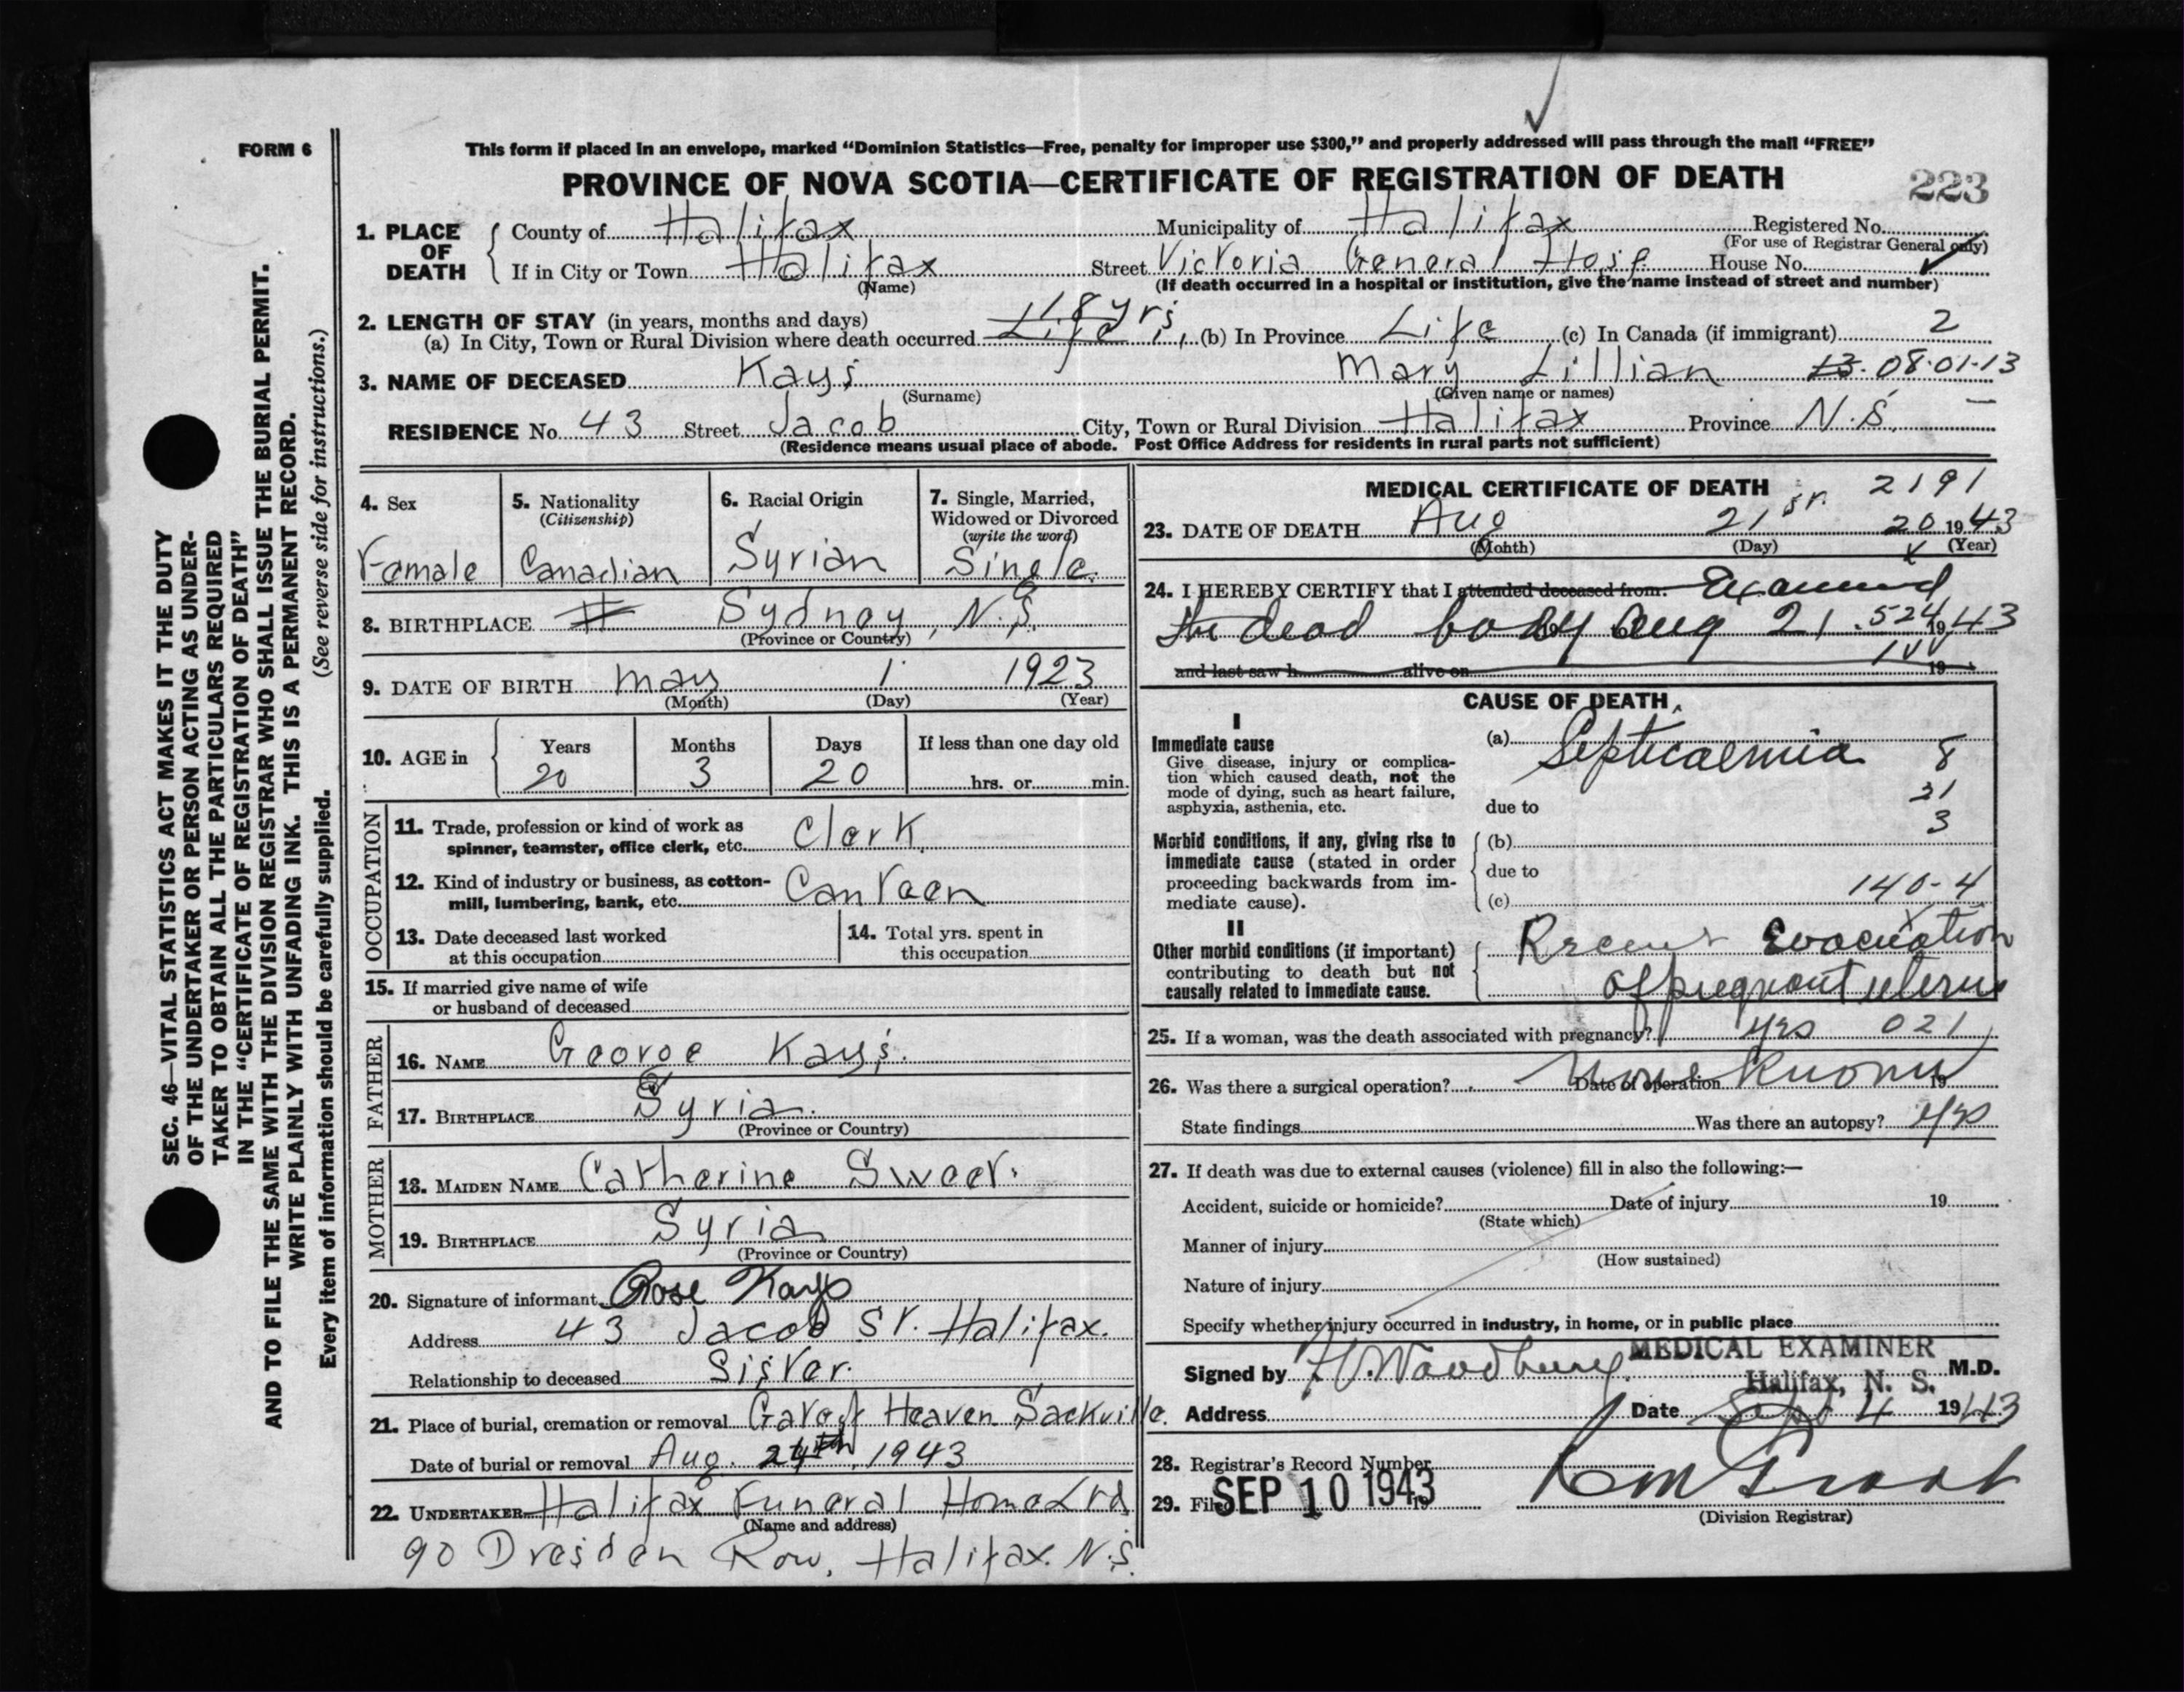 FORM 6
This form if placed in an envelope, marked “Dominion Statistics—Free, penalty for improper use $300,” and properly addressed will pass through the mail “FREE”
PROVINCE OF NOVA SCOTIA—CERTIFICATE OF REGISTRATION OF DEATH
223
1. PLACE OF DEATH County of Halifax Municipality of Halifax Registered No.
(For use of Registrar General only)
If in City or Town Halifax Street Victoria General Hosp House No.
(Name) (If death occurred in a hospital or institution, give the name instead of street and number)
2. LENGTH OF STAY (in years, months and days) 18 yrs
(a) In City, Town or Rural Division where death occurred Life (b) In Province Life (c) In Canada (if immigrant) 2
3. NAME OF DECEASED Kays Mary Lillian 13. 08.01-13
(Surname) (Given name or names)
RESIDENCE No. 43 Street Jacob City, Town or Rural Division Halifax Province N.S.
(Residence means usual place of abode. Post Office Address for residents in rural parts not sufficient)
4. Sex Female
5. Nationality (Citizenship) Canadian
6. Racial Origin Syrian
7. Single, Married, Widowed or Divorced (write the word) Single.
8. BIRTHPLACE H Sydney, N.S.
(Province or Country)
9. DATE OF BIRTH May 1 1923
(Month) (Day) (Year)
10. AGE in Years 20 Months 3 Days 20 If less than one day old hrs. or min.
OCCUPATION
11. Trade, profession or kind of work as spinner, teamster, office clerk, etc. Clerk.
12. Kind of industry or business, as cotton-mill, lumbering, bank, etc. Canteen
13. Date deceased last worked at this occupation
14. Total yrs. spent in this occupation
15. If married give name of wife or husband of deceased
FATHER
16. NAME George Kays.
17. BIRTHPLACE Syria.
(Province or Country)
MOTHER
18. MAIDEN NAME Catherine Sweet.
19. BIRTHPLACE Syria
(Province or Country)
20. Signature of informant Rose Kays
Address 43 Jacob St. Halifax.
Relationship to deceased Sister.
21. Place of burial, cremation or removal Gate of Heaven Sackville.
Date of burial or removal Aug. 24th, 1943
22. UNDERTAKER Halifax Funeral Home Ltd
(Name and address)
90 Dresden Row, Halifax. N.S.
MEDICAL CERTIFICATE OF DEATH 2191
23. DATE OF DEATH Aug 21st. 20 1943
(Month) (Day) (Year)
24. I HEREBY CERTIFY that I attended deceased from: Examined
the dead body Aug 21. 524 1943
and last saw h alive on 19
CAUSE OF DEATH
I
Immediate cause
Give disease, injury or complication which caused death, not the mode of dying, such as heart failure, asphyxia, asthenia, etc.
(a) Septicaemia 8
31
due to
3
Morbid conditions, if any, giving rise to immediate cause (stated in order proceeding backwards from immediate cause).
(b)
due to
140-4
(c)
II
Other morbid conditions (if important) contributing to death but not causally related to immediate cause.
Recent Evacuation
of pregnant uterus
25. If a woman, was the death associated with pregnancy? yes 021
26. Was there a surgical operation? None Known Date of operation 19
State findings Was there an autopsy? yes
27. If death was due to external causes (violence) fill in also the following:—
Accident, suicide or homicide? Date of injury 19
(State which)
Manner of injury
(How sustained)
Nature of injury
Specify whether injury occurred in industry, in home, or in public place
MEDICAL EXAMINER
Signed by Woodbury M.D.
Halifax, N. S.
Address Date Sept 4 1943
28. Registrar's Record Number
29. Filed SEP 10 1943
(Division Registrar)
SEC. 46—VITAL STATISTICS ACT MAKES IT THE DUTY
OF THE UNDERTAKER OR PERSON ACTING AS UNDER-
TAKER TO OBTAIN ALL THE PARTICULARS REQUIRED
IN THE “CERTIFICATE OF REGISTRATION OF DEATH”
AND TO FILE THE SAME WITH THE DIVISION REGISTRAR WHO SHALL ISSUE THE BURIAL PERMIT.
WRITE PLAINLY WITH UNFADING INK. THIS IS A PERMANENT RECORD.
Every item of information should be carefully supplied. (See reverse side for instructions.)